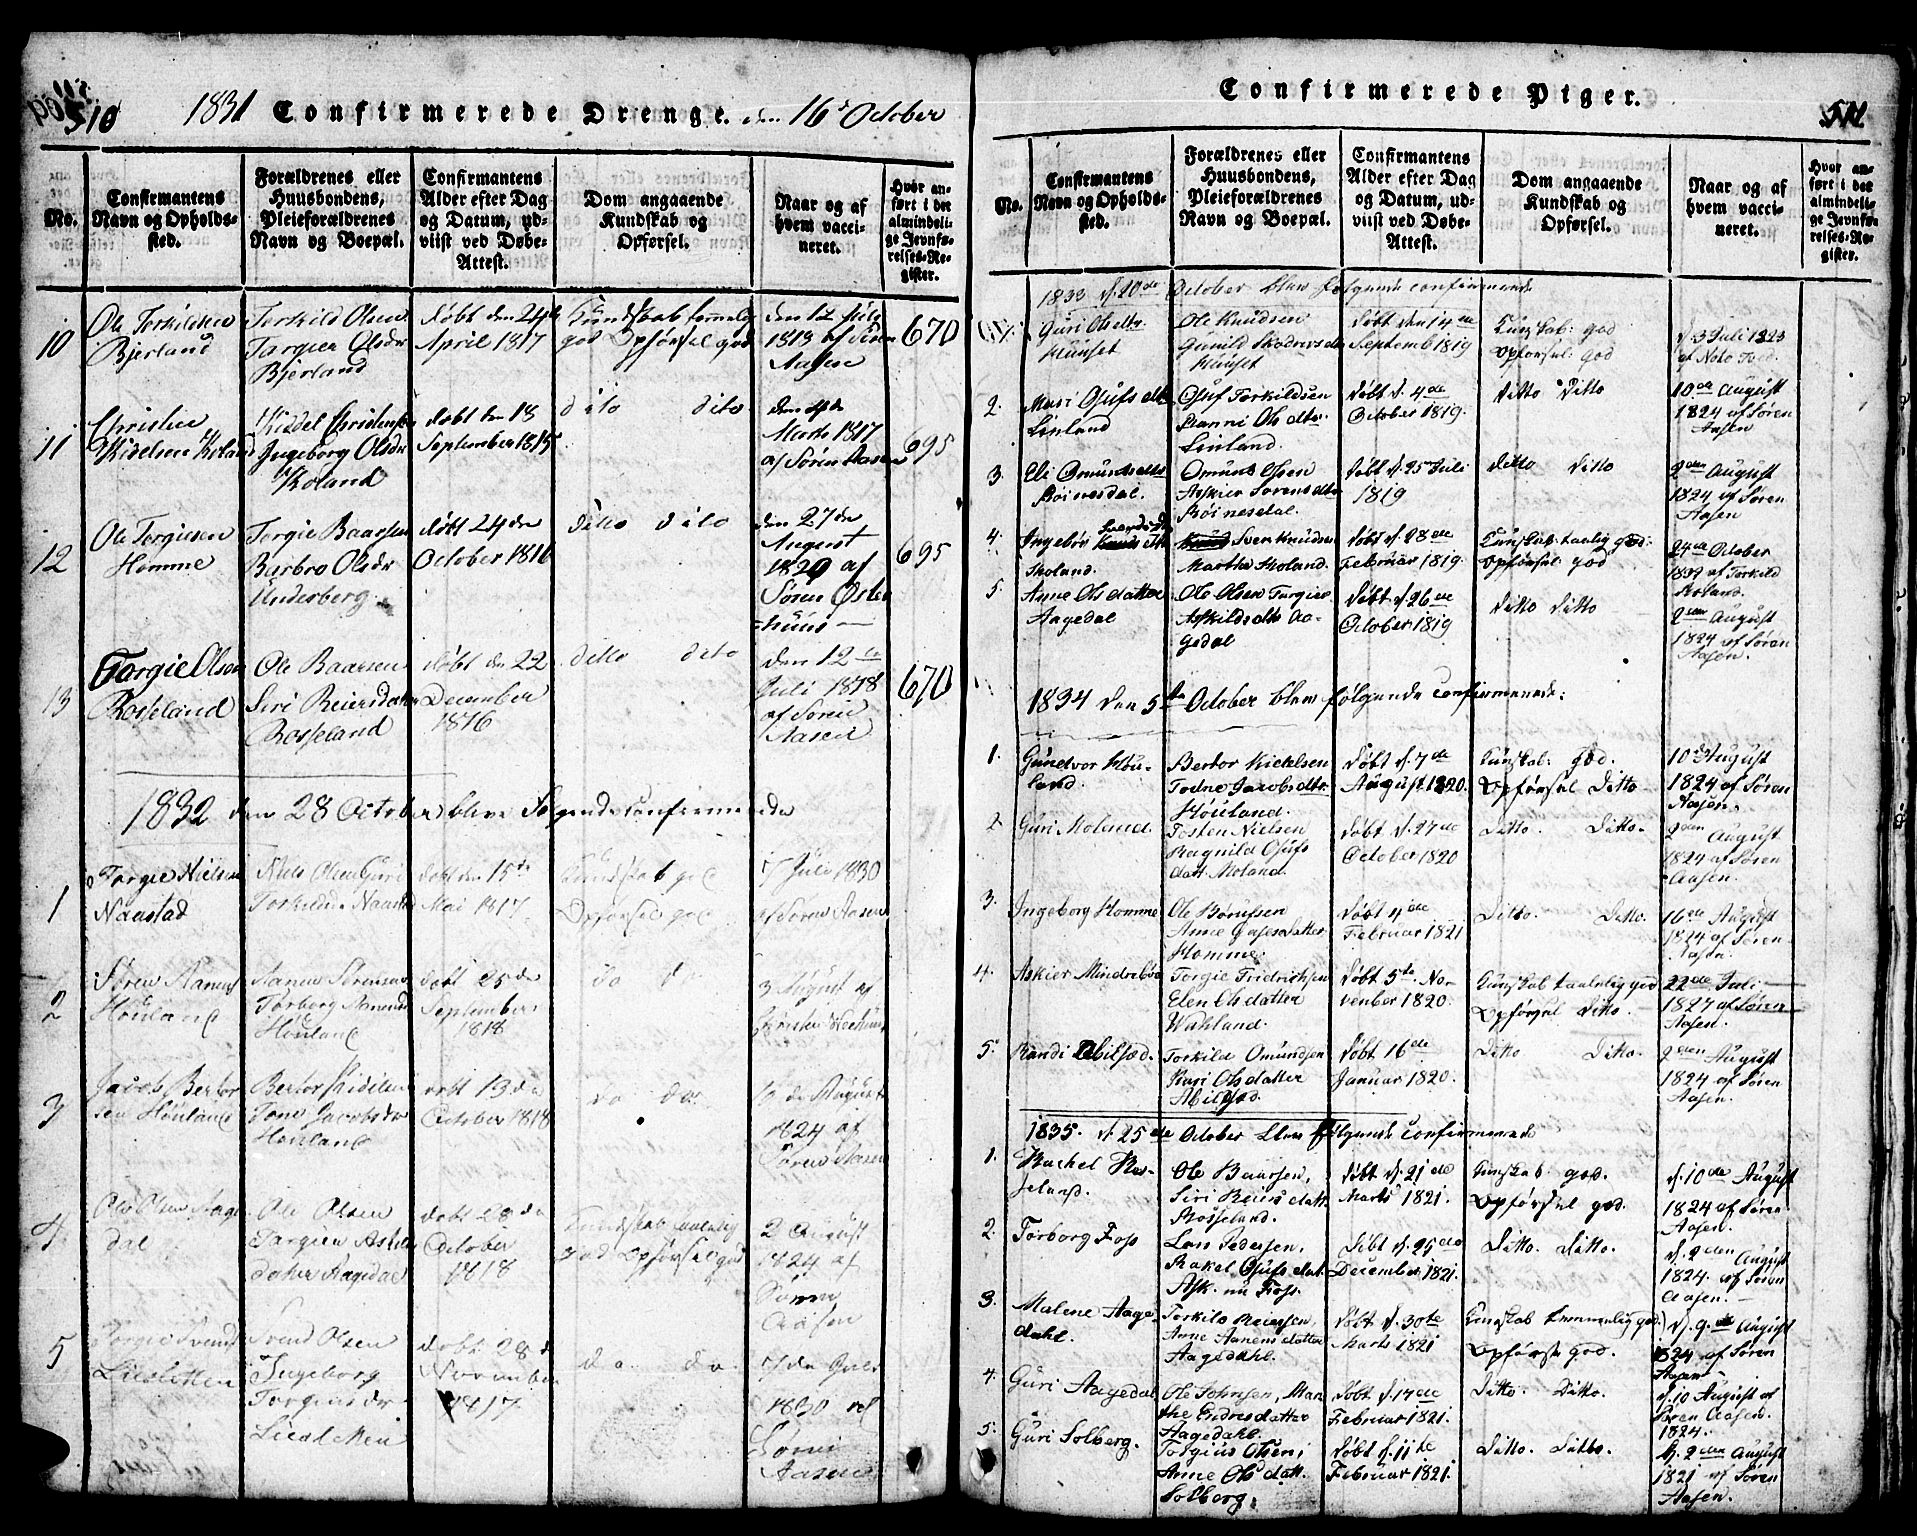 510
1831 Confirmerede Drenge. den 16de October
No.
Confirmantens
Navn og Opholds-
sted.
Forældrenes eller
Huusbondens,
Pleieforældrenes
Navn og Boepæl.
Confirmantens
Alder efter Dag
og Datum, ud-
viist ved Døbe-
Attest.
Dom angaaende
Kundskab og
Opførsel.
Naar og af
hvem vacci-
neret.
Hvor an-
ført i det
almindeli-
ge Jevnfø-
relses-Re-
gister.
10
Ole Torkildsen
Bjerland
Torkild Olsen
Targier Olsdr
Bjerland
døbt den 24de
April 1817
Kundskab temmelig
god Opførsel god
den 12 Juli
1818 af Søren
Aasen
670
11
Christen
Kidelsen Koland
Kiddel Christensen
Ingeborg Olsdr
Koland
døbt den 18
September 1815
dito dito
den 4de
Marts 1817
af Søren Aasen
695
12
Ole Torgiesen
Homme
Torgie Baarsen
Barbro Olsdr
Underberg
døbt 24de
October 1816
ditto dito
den 27de
August
1820 af
Søren Østen
=huus
695
13
Torgie Olsen
Rosseland
Ole Baarsen
Siri Reiersdatter
Rosseland
døbt den 22
December
1816
ditto dito
den 12te
Juli 1818
af Søren
Aasen
670
1832 den 28 October bleve følgende confirmerede
1
Torgie Nielsen
Naastad
Niels Olsen Guri
Torkildsdr Naastad
døbt den 15de
Mai 1817
Kundskab god
Opførsel god
7 Juli 1830
af Søren Aasen
2
Søren Aanensen
Houland
Aanen Sørensen
Torborg Aanensdr
Houland
døbt 25de
September
1818
do do
3 August af
3
Jacob Bertor
sen Houland
Bertor Kidelsen
Tone Jacobsdr
Houland
døbt 13de
October 1818
do do
10de August
1824 af
Søren Aasen
4
Ole Olsen Aage
dal
Ole Olsen
Targier Askilds
datter Aagedal
døbt 28de
October
1818
Kundskab taalelig
god Opførsel god
2 August
1824 af
Søren
Aasen
5
Torgie Svends
Liesletten
Svend Olsen
Ingeborg
Torgiusdr
Liesletten
døbt 28de
November
1817
do do
1830 ved
Søren
Aasen
Confirmerede Piger.
511
No.
Confirmantens
Navn og Opholds-
sted.
Forældrenes eller
Huusbondens,
Pleieforældrenes
Navn og Boepæl.
Confirmantens
Alder efter Dag
og Datum, ud-
viist ved Døbe-
Attest.
Dom angaaende
Kundskab og
Opførsel.
Naar og af
hvem vacci-
neret.
Hvor an-
ført i det
almindeli-
ge Jevnfø-
relses-Re-
gister.
1833 d. 20de October blev følgende confirmerede
Guri Olsdtr
Kuuset
Ole Knudsen
Gunild
Kuuset
Døbt den 14de
Septemb 1819
Kunskab: god
Opførsel: god
d. 3 Juli 1823
af
2.
Mari Olufs dtr
Linland
Oluf Torkildsen
Ranni Ols dtr
Linland.
Døbt d. 4de
October 1819.
Ditto Ditto
10de August
1824 af Søren
Aasen
3.
Eli Omunds dtr
Røinesdal.
Omund Olsen
Askier Sørens dtr
Røinesdal.
Døbt d. 25de Juli
1819
Ditto Ditto
2den August
1824 af Søren
Aasen
4.
Ingebor Svends dtr
Moland.
Sven Knudsen
Martha Moland.
Døbt d. 28de
Februar 1819.
Kunskab: taalig god:
Opførsel god
24de October
af Torkild
Roland.
5.
Anne Olsdatter
Aagedal
Ole Olsen Targier
Askilds dtr Aa-
gedal
Døbt d. 26de
October 1819
Ditto Ditto
2den August
1824 af Søren
Aasen.
1834 den 5te October blev følgende confirmerede:
1.
Gundvor Hou-
land.
Bertor Kidelsen
Todne Jacobsdtr.
Houland.
Døbt d. 7de
August 1820.
Kunskab: god.
Opførsel Ditto
10de August
1824 af Søren
Aasen.
2
Guri Moland.
Tosten Nielsen
Ragnild Olufs
datt. Moland.
Døbt d. 27de
October 1820
Ditto. Ditto.
2den August
1824 af Søren
Aasen.
3.
Ingeborg Homme
Ole Børufsen
Anne datter
Homme.
Døbt 4de
Februar 1821
Ditto. Ditto.
16de August
1824 af Søren
Aasen.
4.
Askier Mindrebøe
Torgie Fridrichsen
Elen Olsdatter
Wahland.
Døbt 5te No-
vember 1820.
Kunskab taalelig god
Opførsel Ditto.
22de Juli
1827 af Søren
Aasen.
5.
Randi Abilsæd.
Torkild Omundsen
Kari Olsdatter
Abilsæd.
Døbt 16de
Januar 1820.
Ditto Ditto.
2den August
1824 af Søren
Aasen.
1835. d. 25de October blev følgende confirmerede
1.
Rachel Ros-
seland.
Ole Baarsen,
Siri Reiers datt.
Rosseland.
Døbt d. 21de
Marts 1821.
Kunskab: god.
Opførsel god.
d. 10de August
1824 af Søren
Aasen.
2.
Torborg Foss
Lars Pedersen,
Rakel Olufs dat.
Ask. nu Foss.
Døbt d. 25de
December 1821.
Ditto. Ditto.
d. 2den August
1824. af Søren
Aasen.
3.
Malene Aage-
dahl.
Torkild Reiersen,
Anne Aanensdatter
Aagedahl.
Døbt d. 30te
Marts 1821
Kunskab temmelig god.
Opførsel god.
d. 9de August
1824 af Søren
Aasen
4.
Guri Aagedal
Ole Johnsen, Mar
the Endresdatter
Aagedahl.
Døbt d. 17de
Februar 1821.
Ditto. Ditto.
d. 10 August af
Søren Aasen.
1824.
5.
Guri Solberg.
Torgius Olsen,
Anne Ols datt.
Solberg.
Døbt d. 11te
Februar 1821.
Ditto. Ditto.
d. 2den August
1821 af Søren
Aasen.